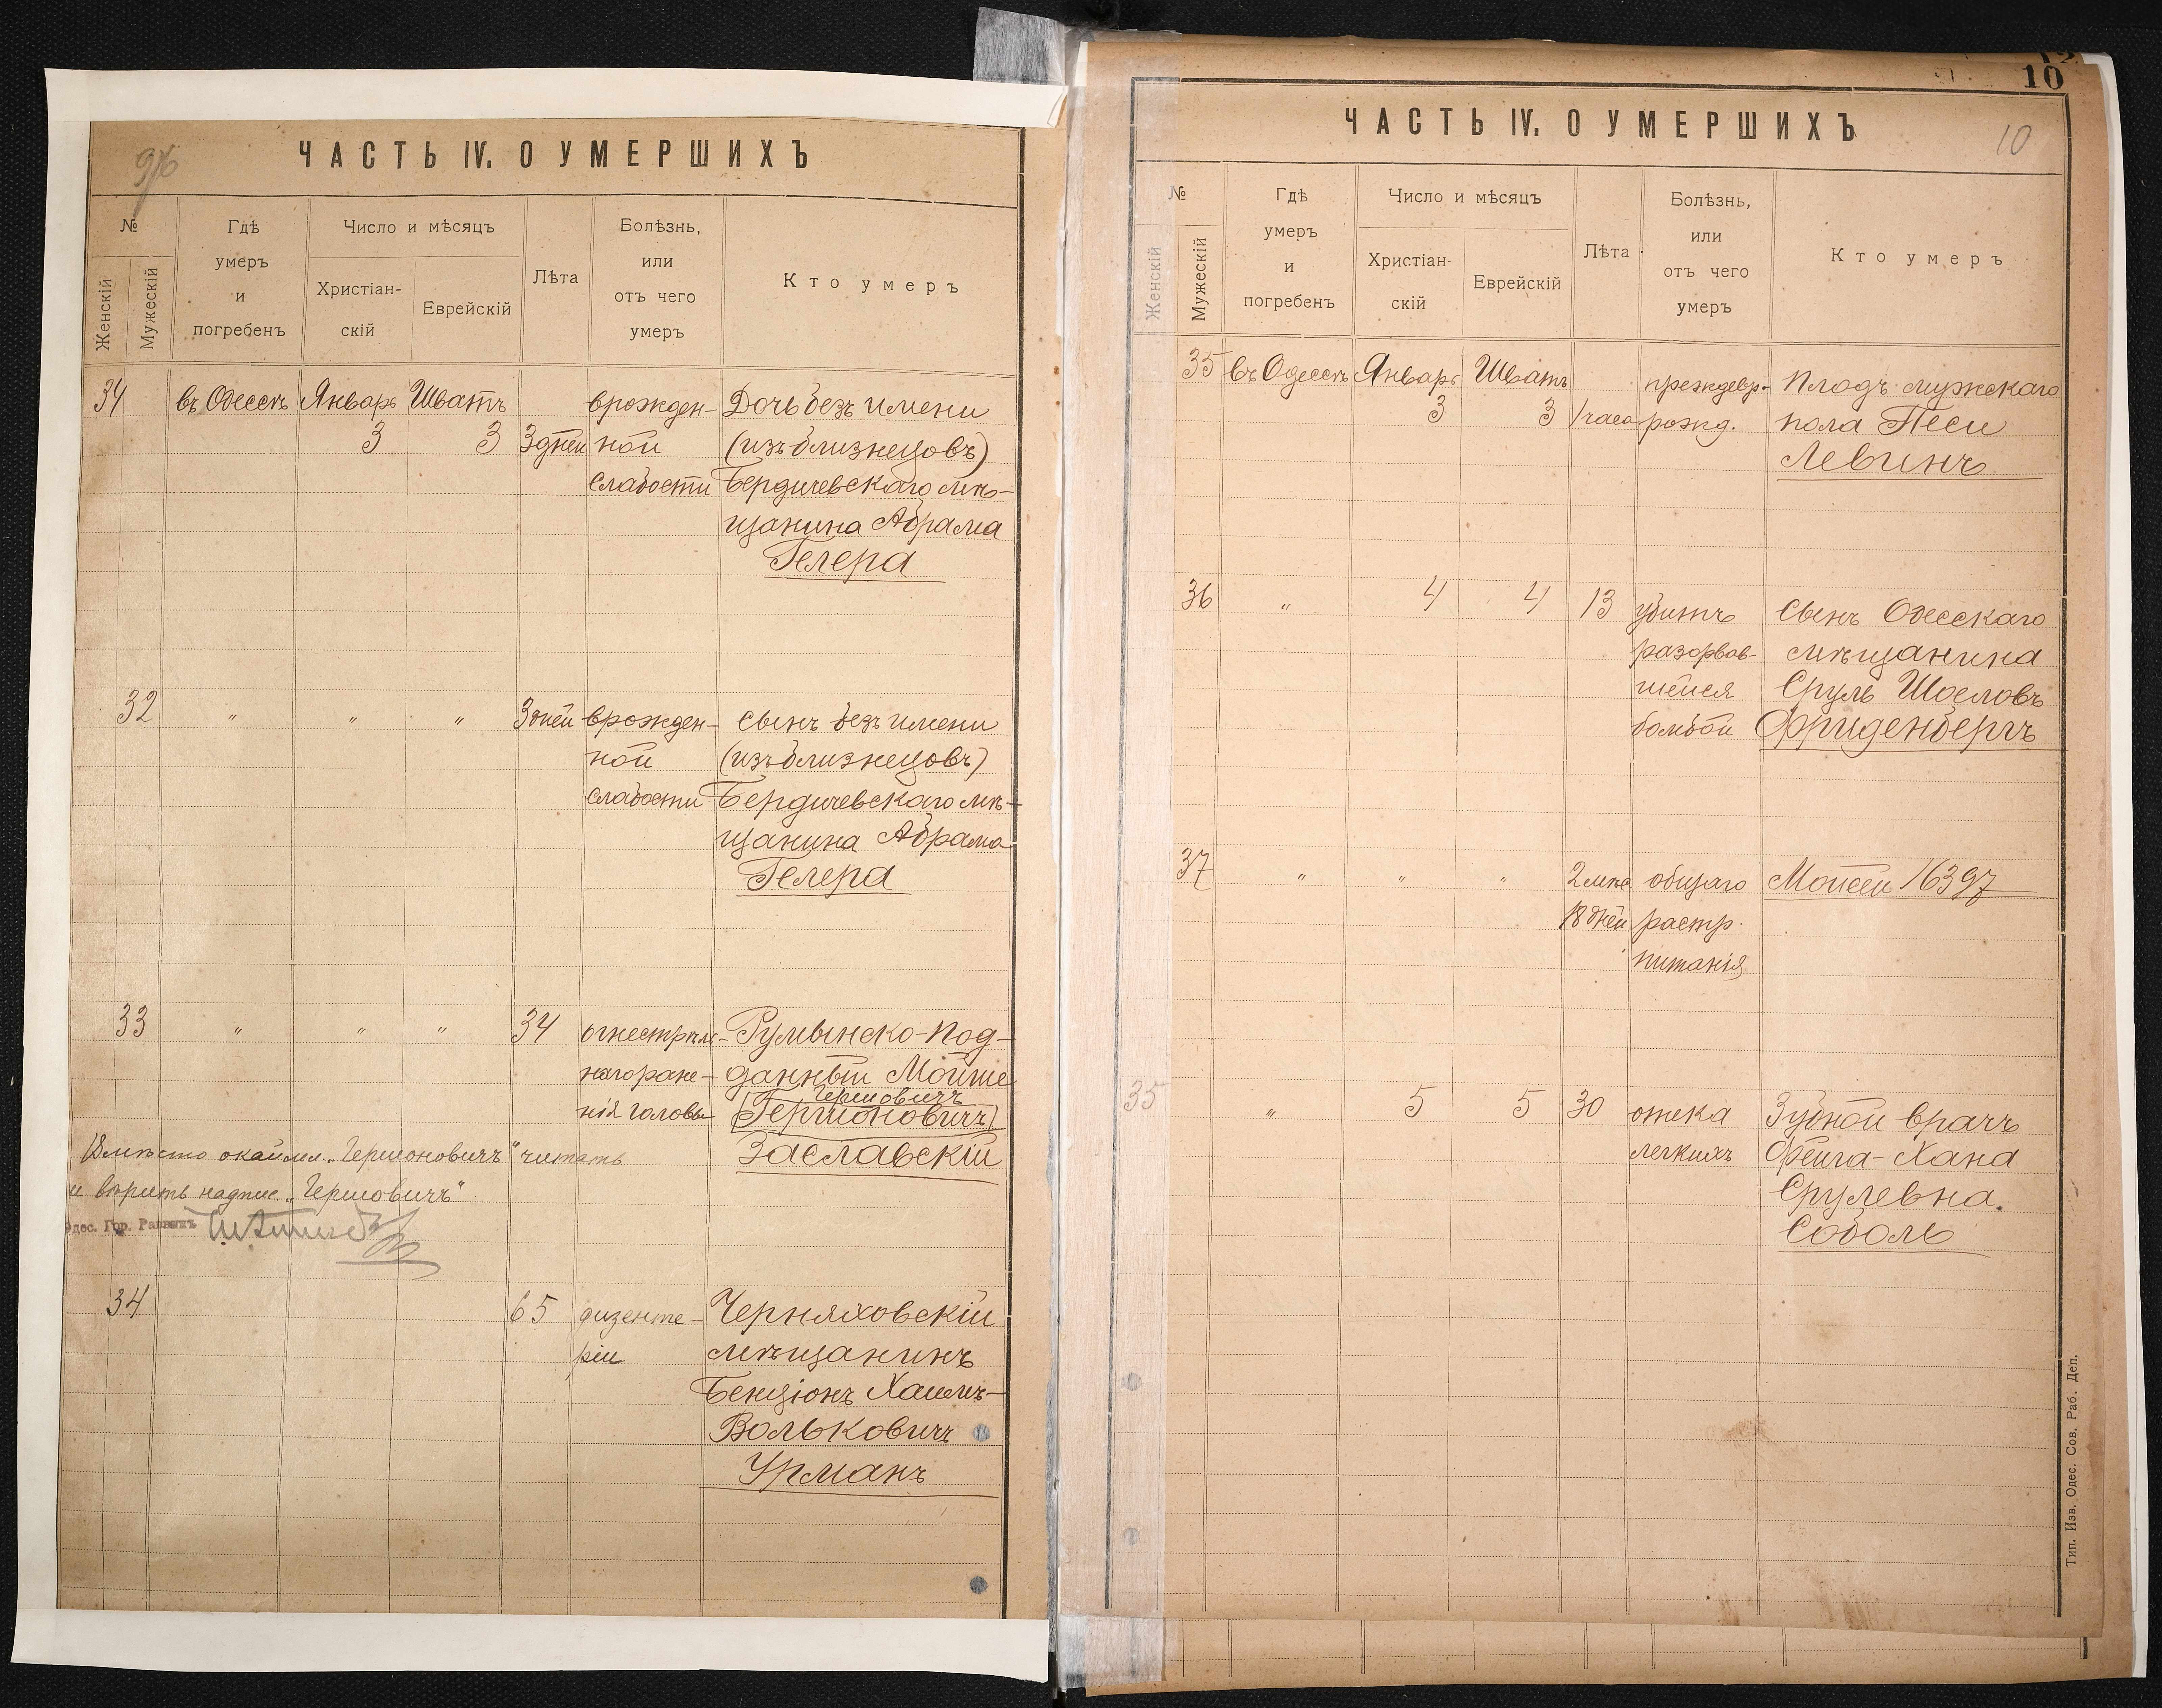 9б
ЧАСТЬ IV. О УМЕРШИХЪ
№
Женскій
Мужескій
Гдѣ
умеръ
и
погребенъ
Число и мѣсяцъ
Христіан-
скій
Еврейскій
Лѣта
Болѣзнь,
или
отъ чего
умеръ
Кто умеръ
34 въ Одессѣ Январь Шватъ врожден- Дочь безъ имени
3 3 3 дней ной (изъ близнецовъ)
слабости Бердичевскаго мѣ-
щанина Абрама
Гелера
32 " " " 3 дней врожден- Сынъ безъ имени
ной (изъ близнецовъ)
слабости Бердичевскаго мѣ-
щанина Абрама
Гелера
33 " " " 34 огнестрѣль- Румынско-под-
наго ране- данный Мойше
Гершовичъ
нія головы Гершоновичъ
Вмѣсто окаймл. „Гершоновичъ" читать Заславскій
и вѣрить надпис. „Гершовичъ"
Одес. Гор. Раввинъ
34 65 дизенте- Черняховскій
ріи мѣщанинъ
Бенціонъ Хаимъ-
Вольковичъ
Урманъ
10
10
ЧАСТЬ IV. О УМЕРШИХЪ
№
Женскій
Мужескій
Гдѣ
умеръ
и
погребенъ
Число и мѣсяцъ
Христіан-
скій
Еврейскій
Лѣта
Болѣзнь,
или
отъ чего
умеръ
Кто умеръ
35 въ Одессѣ Январь Шватъ преждевр- Плодъ мужскаго
3 3 1 часа рожд. пола Песи
Левинъ
36 " 4 4 13 убитъ Сынъ Одесскаго
разорвав- мѣщанина
шейся Сруль Шоеловъ
бомбой Фриденбергъ
37 " " " 2 мѣс. общаго Мойсей 16397
18 дней растр.
питанія
35 " 5 5 30 отека Зубной врачъ
легкихъ Фейга-Хана
Срулевна
Соболь
Тип. Изв. Одес. Сов. Раб. Деп.